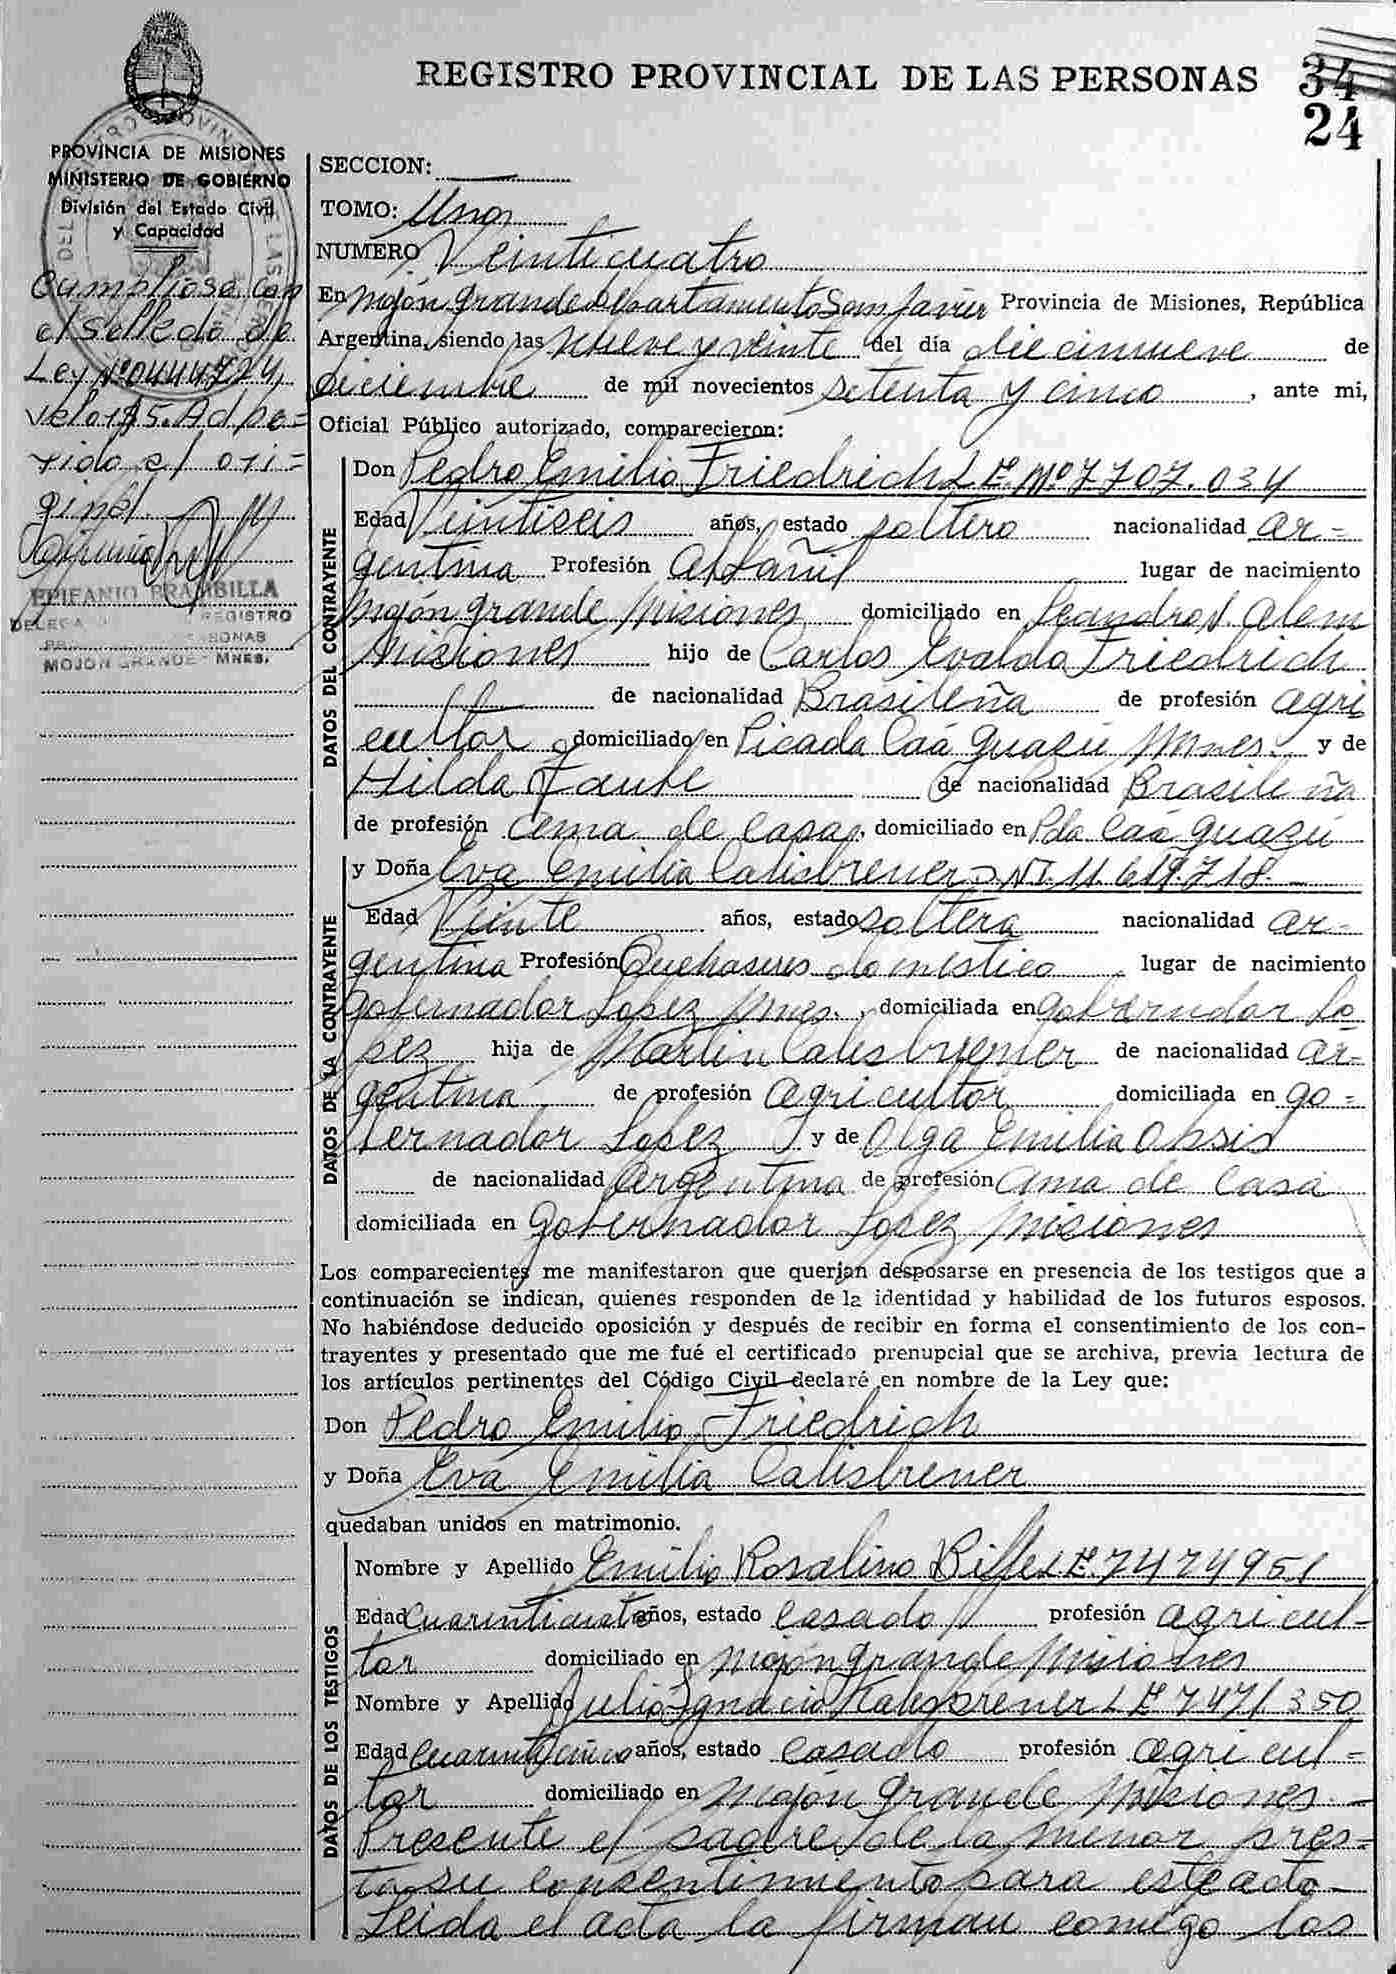 REGISTRO PROVINCIAL DE LAS PERSONAS
34
24
PROVINCIA DE MISIONES
MINISTERIO DE GOBIERNO
División del Estado Civil
y Capacidad
Cumpliose con
el Sellado de
Ley Nº 0444724
valor $5. Adhe=
rido al ori=
ginal.
EPIFANIO BRAMBILLA
REGISTRO
MOJON GRANDE - MNES.
SECCION:
TOMO: Uno
NUMERO Veinticuatro
En Mojón grande Departamento San Javier Provincia de Misiones, República
Argentina, siendo las nueve y veinte del día diecinueve de
diciembre de mil novecientos setenta y cinco, ante mi,
Oficial Público autorizado, comparecieron:
DATOS DEL CONTRAYENTE
Don Pedro Emilio Friedrich L.E. Nº 7707.034
Edad Veintiseis años, estado soltero nacionalidad ar=
gentina Profesión albañil lugar de nacimiento
Mojón grande Misiones domiciliado en Leandro N. Alem
Misiones hijo de Carlos Evaldo Friedrich
de nacionalidad Brasileña de profesión agri
cultor domiciliado en Picada Caá Guazú Mnes. y de
Hilda de nacionalidad Brasileña
de profesión ama de casa, domiciliado en Pda Caá guazú
DATOS DE LA CONTRAYENTE
y Doña Eva Emilia Calisbrener D.N.I. 11.619.718.
Edad Veinte años, estado soltera nacionalidad ar-
gentina Profesión Quehaseres domestico lugar de nacimiento
Gobernador Lopez Mnes., domiciliada en gobernador Lo
pez hija de Martin Calisbrener de nacionalidad ar-
gentina de profesión agricultor domiciliada en go=
bernador Lopez y de Olga Emilia
de nacionalidad Argentina de profesión ama de casa
domiciliada en Gobernador Lopez Misiones
Los comparecientes me manifestaron que querían desposarse en presencia de los testigos que a
continuación se indican, quienes responden de la identidad y habilidad de los futuros esposos.
No habiéndose deducido oposición y después de recibir en forma el consentimiento de los con-
trayentes y presentado que me fué el certificado prenupcial que se archiva, previa lectura de
los artículos pertinentes del Código Civil declaré en nombre de la Ley que:
Don Pedro Emilio Friedrich
y Doña Eva Emilia Calisbrener
quedaban unidos en matrimonio.
DATOS DE LOS TESTIGOS
Nombre y Apellido Emilio Rosalino L.E. 7474951
Edad años, estado casado profesión agricul-
tor domiciliado en Mojón grande Misiones
Nombre y Apellido Julio Ignacio Kalisbrener L.E. 7471350
Edad años, estado casado profesión agricul=
tor domiciliado en Mojón grande Misiones.-
Presente el padre de la menor pres=
ta su consentimiento para este acto-
Leida el acta la firman comigo los